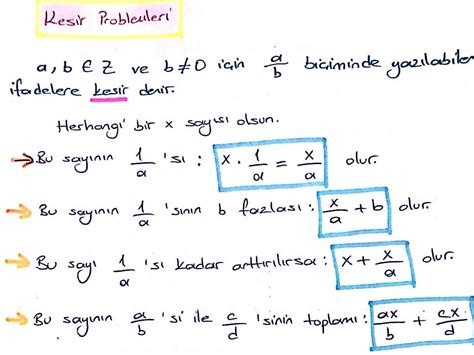 Kesir Problemleri
a, b ∈ Z ve b ≠ 0 için a/b biçiminde yazılabilen
ifadelere kesir denir.
Herhangi bir x sayısı olsun.
→ Bu sayının 1/a 'sı : x · 1/a = x/a olur.
→ Bu sayının 1/a 'sının b fazlası : x/a + b olur.
→ Bu sayı 1/a 'sı kadar arttırılırsa : x + x/a olur.
→ Bu sayının a/b 'si ile c/d 'sinin toplamı : ax/b + cx/d